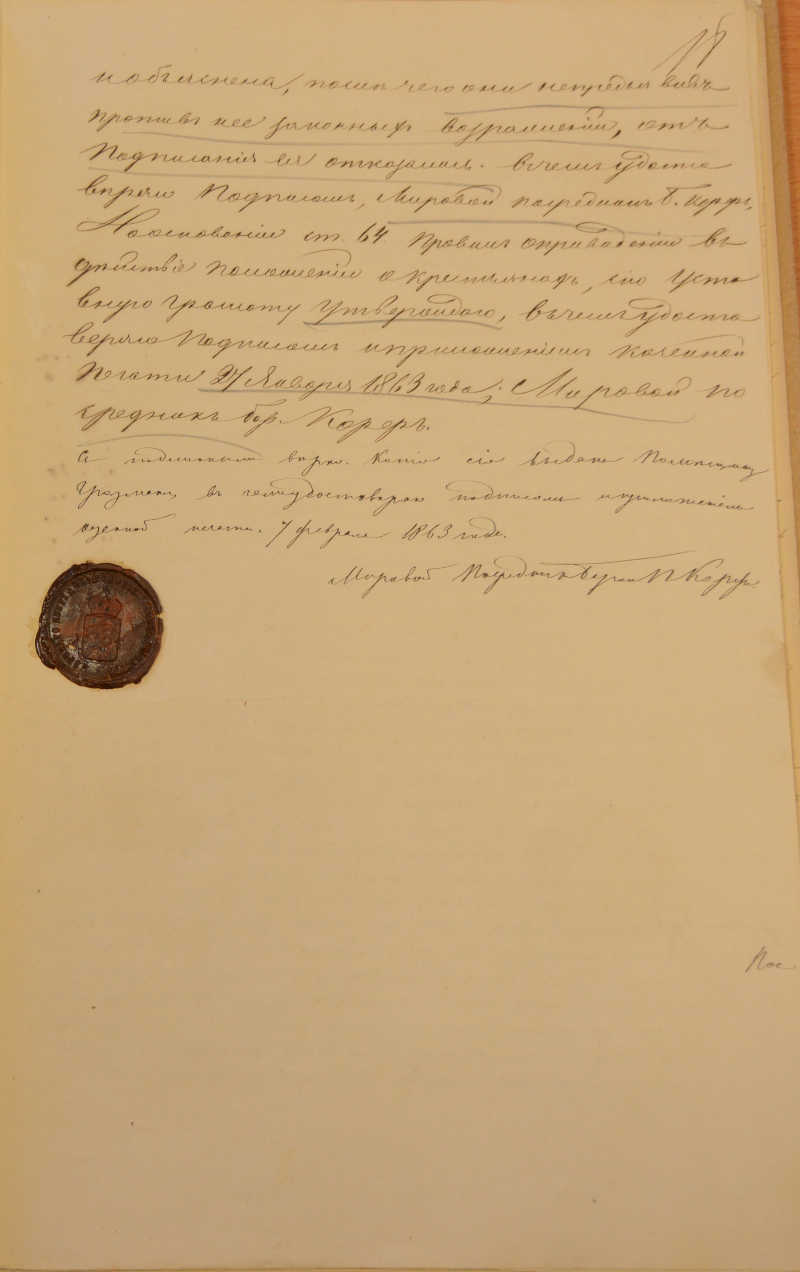 и объяснена, после чего они непредъявивъ
противъ нее законныхъ возраженiй, отъ
Подписанiя ея отказались. Въ чемъ удосто
веряю Подписомъ, Мировой посредникъ Б. Корфъ,
На основанiи ст. 64 Правилъ о приведенiи въ
дѣйствiе Положенiй о крестьянахъ, сiю Уста
вную Грамоту Утверждаю, въ чемъ удосто
веряю Подписомъ и приложенiемъ казенной
Печати 27 Января 1863 года, Мировой по
средникъ бар. Корфъ.
Съ подлиннымъ верно. Копiя сiя выдана Помещику
въ чемъ удостоверяю подписомъ и приложенiемъ
казенной печати. 7 февраля 1863 года.
Мировой Посредникъ Баронъ Корфъ
Пос